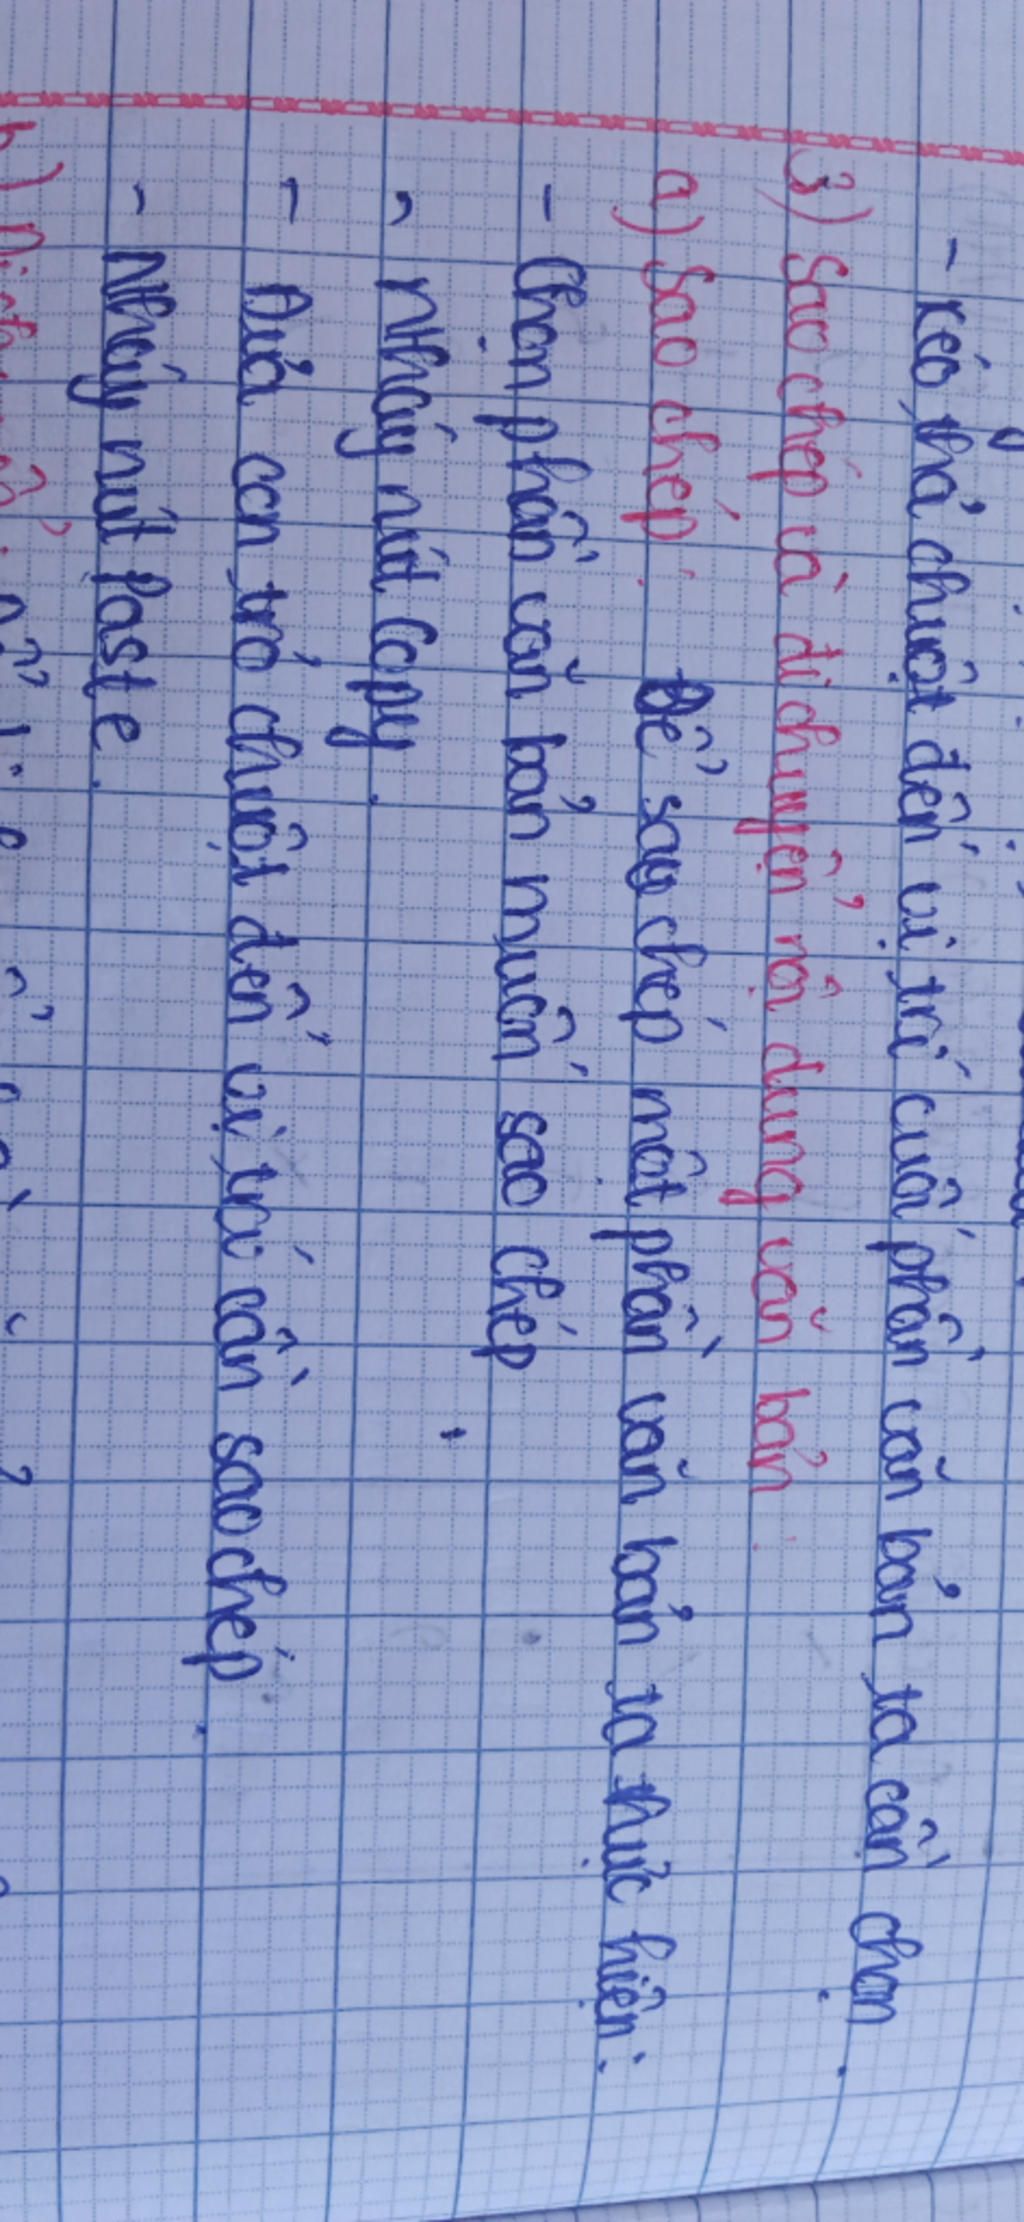 - Kéo thả chuột đến vị trí cuối phần văn bản ta cần chọn.
3) Sao chép và di chuyển nội dung văn bản.
a) Sao chép. Để sao chép một phần văn bản ta thực hiện:
- Chọn phần văn bản muốn sao chép
- Nháy nút Copy.
- Đưa con trỏ chuột đến vị trí cần sao chép.
- Nháy nút Paste.